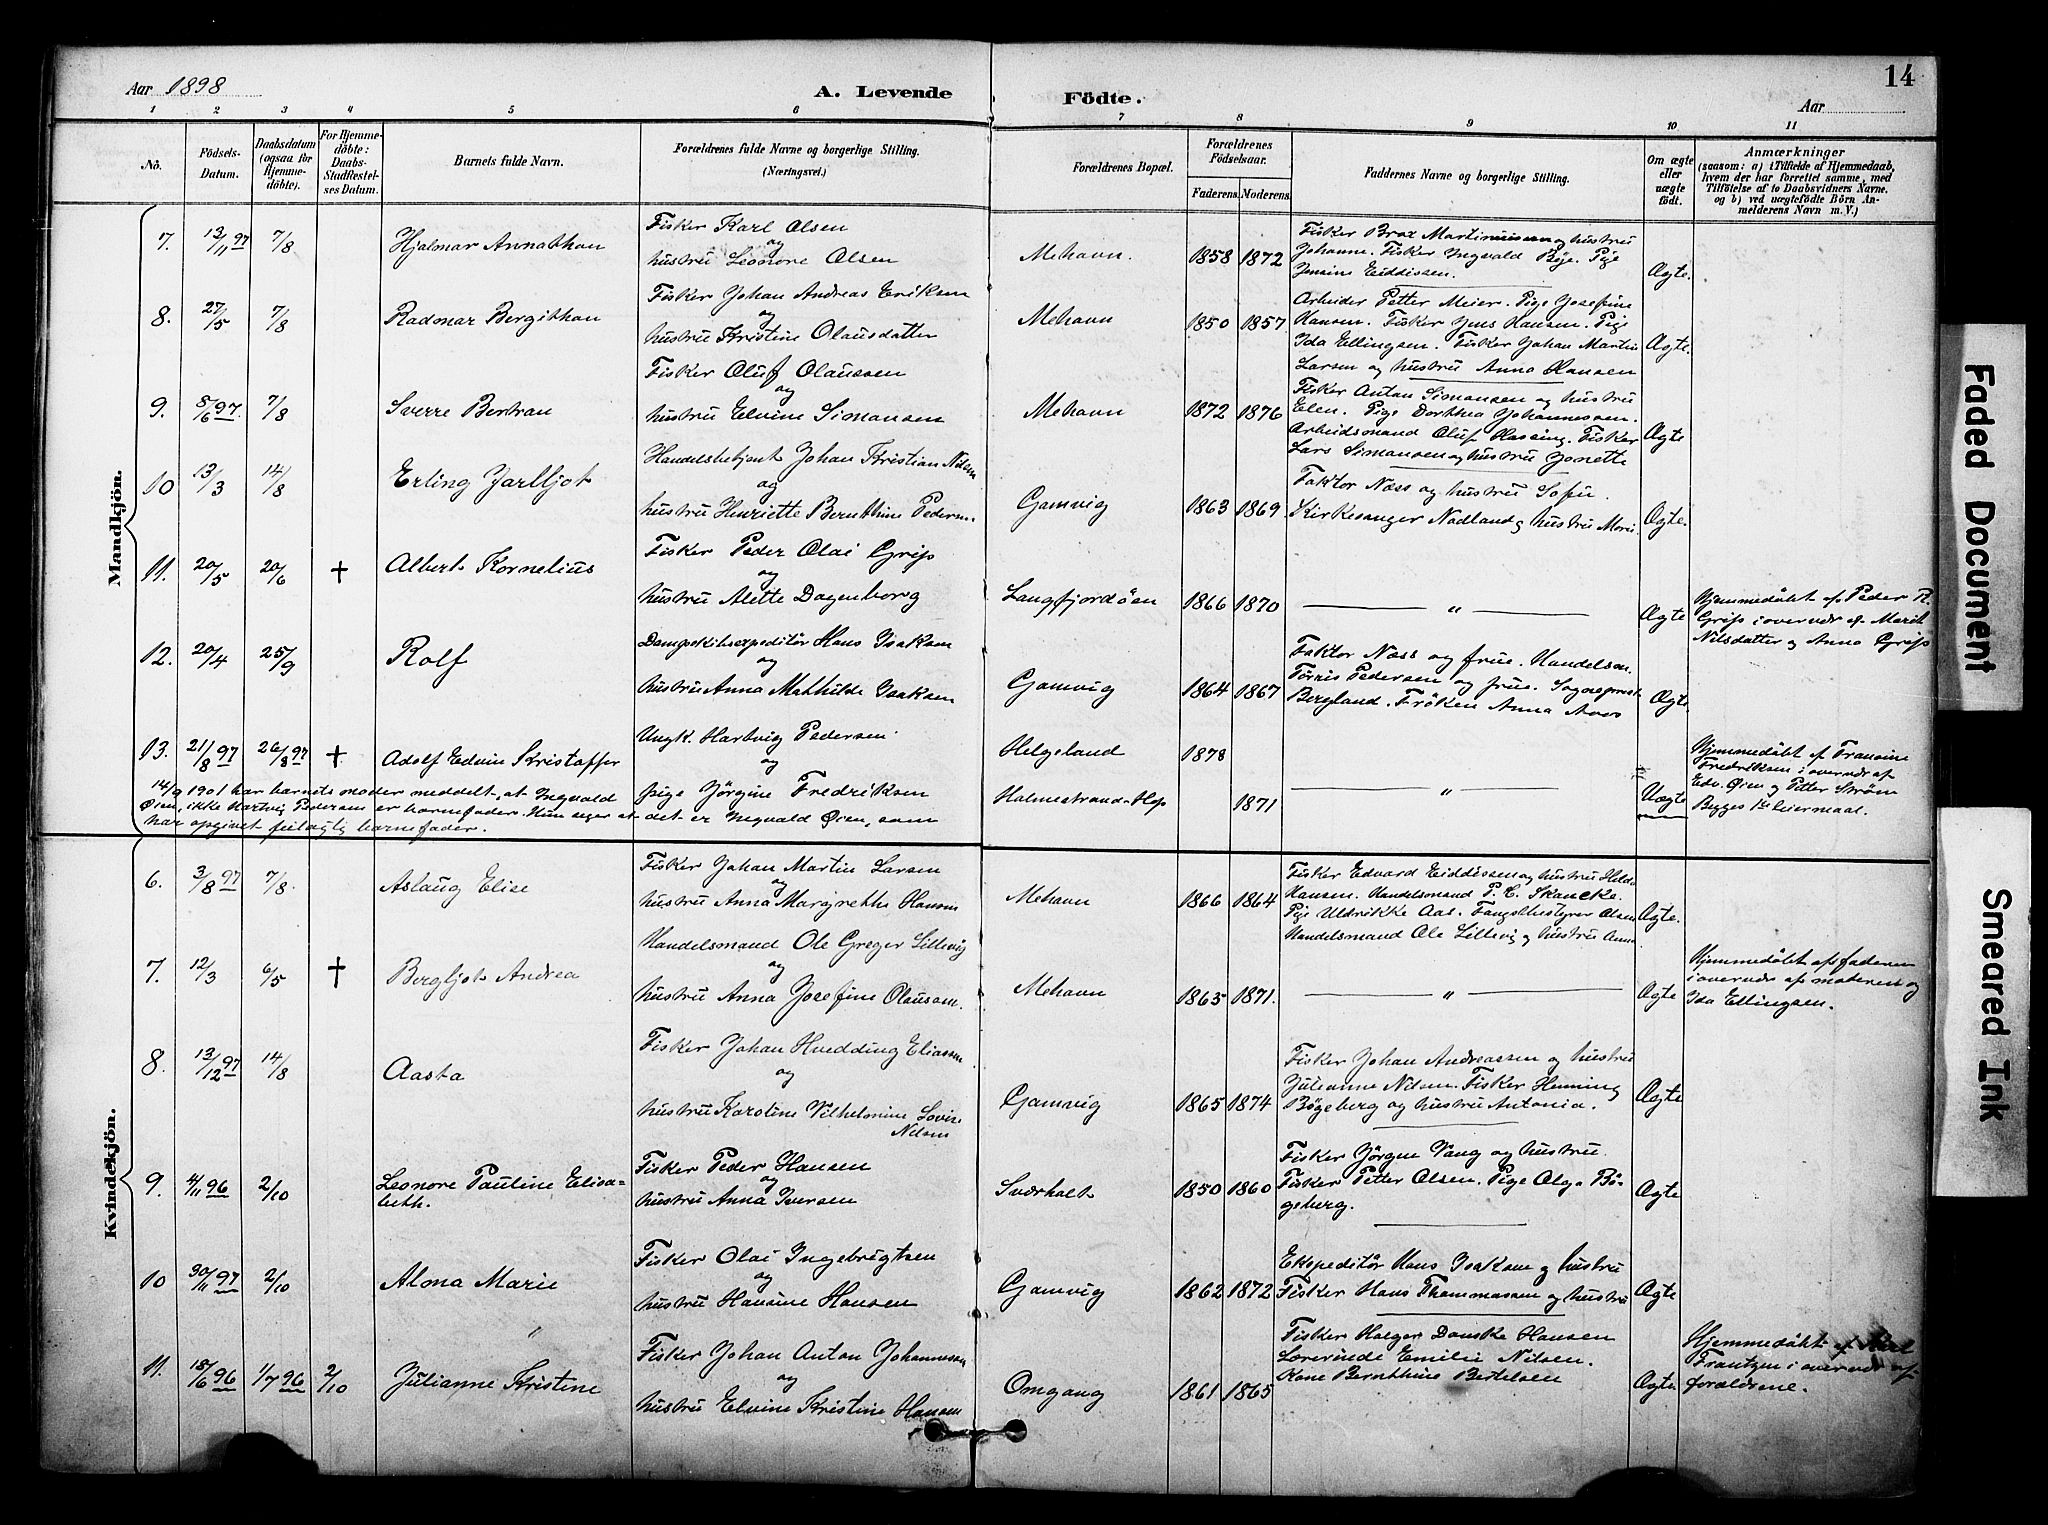 14
Aar 1898
A. Levende
Födte.
Aar
1 2 3 4 5 6 7 8 9 10 11
No.
Födsels-Datum.
Daabsdatum (ogsaa for Hjemmedöbte).
For Hjemmedöbte: Daabs-Stadfæstelses Datum.
Barnets fulde Navn.
Forældrenes fulde Navne og borgerlige Stilling. (Næringsvei.)
Forældrenes Bopæl.
Forældrenes Födselsaar.
Faderens. Moderens.
Faddernes Navne og borgerlige Stilling.
Om ægte eller uægte födt.
Anmærkninger
(saasom: a) i Tilfælde af Hjemmedaab, hvem der har forrettet samme, med Tilföielse af to Daabsvidners Navne. og b) ved uægtefödte Börn Anmelderens Navn m. V.)
Mandkjön.
7. 13/11 97 7/8 Hjalmar Annathon
Fisker Karl Olsen
og
hustru Leonore Olsen
Mehavn. 1858 1872
Fisker Brox Martinussen og hustru
Johanne. Fisker Ingvald Bøje. Pige
Jensine Eidissen.
Ægte.
8. 27/5 7/8 Radmar Bergithon
Fisker Johan Andreas Eriksen
og
hustru Kristine Olausdatter
Mehavn 1850 1857
Arbeider Petter Meier. Pige Josefine
Hansen. Fisker Jens Hansen. Pige
Ida Ellingsen. Fisker Johan Martin
Larsen og hustru Anna Hansen
Ægte.
9. 8/6 97. 7/8 Sverre Bertran
Fisker Oluf Olaussen
og
hustru Elvine Simonsen
Mehavn 1872 1876
Fisker Anton Simonsen og hustru
Elen. Pige Dorthea Johannessen.
Arbeidsmand Oluf Hassing. Fisker
Lars Simonsen og hustru Jonette
Ægte
10 13/3 14/8 Erling Jarlljot
Handelsbetjent Johan Kristian Nilsen
og
hustru Henriette Bernthine Pedersen.
Gamvig 1863 1869.
Faktor Næss og hustru Sofie.
Kirkesanger Nadland og hustru Marie
Ægte.
11. 20/5 20/6 † Albert Kornelius
Fisker Peder Olai Grip
og
hustru Alette Dagenborg
Langfjordøen 1866 1870
— " —
Ægte
Hjemmedøbt af Peder R.
Grip i overvær af Marit
Nilsdatter og Anna Grip
12. 20/4 25/9 Rolf
Dampskibsexpeditør Hans Isaksen
og
hustru Anna Mathilde Isaksen
Gamvig 1864 1867
Faktor Næss og frue. Handelsm.
Tørris Pedersen og frue. Sogneprest
Bergland. Frøken Anna Aars
Ægte.
13. 21/8 97 26/8 97 † Adolf Edvin Kristoffer
Ungk. Hartvig Pedersen
og
pige Jørgine Fredriksen
Helgeland 1878
Holmestrand-Hop 1871
— " —
Uægte
Hjemmedøbt af Fransine
Fredriksen i overvær af
Edv. Øien og Petter Strøm
Begges 1ste leiermaal.
14/9 1901 har barnets moder meddelt, at Ingvald
Øien, ikke Hartvig Pedersen er barnefader. Hun siger at det er Ingvald Øien, som
har opgivet feilagtig barnefader.
Kvindekjön.
6. 3/8 97 7/8. Aslaug Elise
Fisker Johan Martin Larsen
og
hustru Anna Margrethe Hansen
Mehavn 1866 1864
Fisker Edvard Eidissen og hustru Hilda
Hansen. Handelsmand P. C. Skancke.
Pige Uldrikke Aas. Fangstbestyrer Olsen
Handelsmand Ole Lillevig og hustru Anna
Ægte.
7. 12/3 6/5 † Bergljot Andrea
Handelsmand Ole Greger Lillevig
og
hustru Anna Josefine Olausen.
Mehavn 1863 1871.
— " —
Ægte
Hjemmedøbt af faderen
i overvær af moderen og
Ida Ellingsen.
8. 13/12 97 14/8 Aasta
Fisker Johan Hvedding Eliassen
og
hustru Karoline Vilhelmine Lovise
Nilsen
Gamvig 1865 1874
Fisker Johan Andreassen og hustru
Julianne Nilsen. Fisker Henning
Bøgeberg og hustru Antonia.
Ægte
9. 4/11 96 2/10 Leonore Pauline Elisa-
beth.
Fisker Peder Hansen
og
hustru Anna Iversen
Sværholt 1850 1860
Fisker Jørgen Vang og hustru.
Fisker Petter Olsen. Pige Olga Bø-
geberg.
Ægte
10 30/11 97 2/10 Alma Marie
Fisker Olai Ingebrigtsen
og
hustru Hansine Hansen
Gamvig 1862 1872
Ekspeditør Hans Isaksen og hustru
Fisker Hans Thommassen og hustru
Ægte
11. 18/6 96 1/7 96 2/10 Julianne Kristine
Fisker Johan Anton Johannessen
og
hustru Elvine Kristine Hansen
Omgang 1861 1865
Fisker Holger Danske Hansen
Lærerinde Emilie Nilsen.
Kone Bernthine Bertelsen
Ægte.
Hjemmedøbt af
Frantzen i overvær af
forældrene.
Faded Document
Smeared Ink